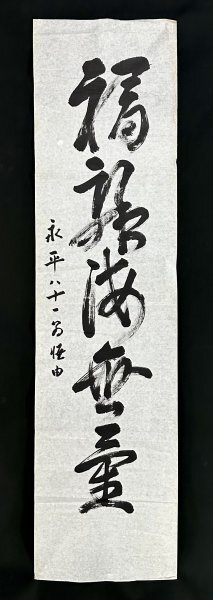 福聚海無量
永平八十一翁悟由